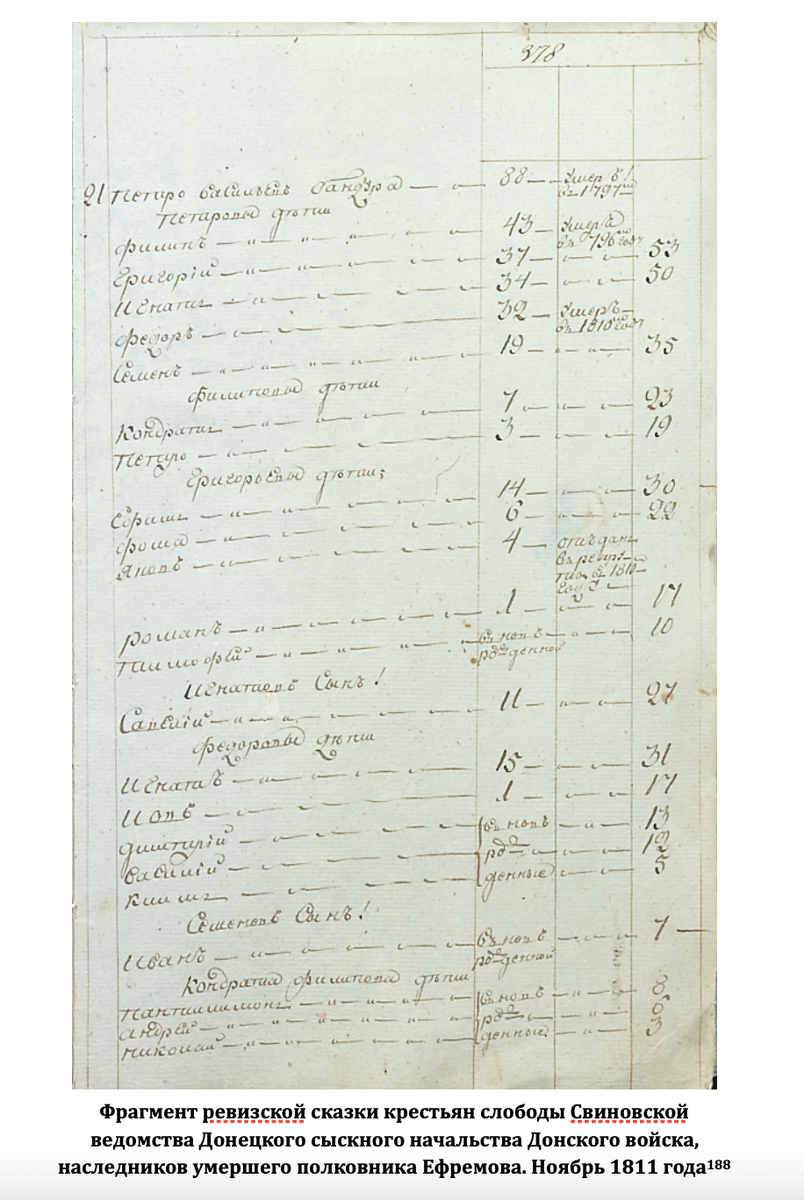 378
21 Петро васильевъ бандура 88 умеръ! въ 1797мъ
Петровы дѣти
Филипъ 43 умеръ въ 796 году
Григорій 37 53
Игнатій 34 50
Федоръ 32 умеръ въ 1810 году
Семенъ 19 35
Филиповы дѣти
Кондратій 7 23
Петро 3 19
Григорьевы дѣти:
Ефимъ 14 30
Фома 6 22
Яковъ 4 отъдан въ рекру ты въ 1810 году
романъ 1 17
тимофѣй въновь рожденной 10
Игнатовъ Сынъ!
Савелій 11 27
Федоровы дѣти
Игнатъ 15 31
Иовъ 1 17
дмитрій въновь 13
василій рож 12
климъ денные 5
Семеновъ Сынъ!
Иванъ въновь рожденной 7
Кондратія филипова дѣти
пантилимонъ въновь 8
андрей рож 6
николай денные 3
Фрагмент ревизской сказки крестьян слободы Свиновской
ведомства Донецкого сыскного начальства Донского войска,
наследников умершего полковника Ефремова. Ноябрь 1811 года188